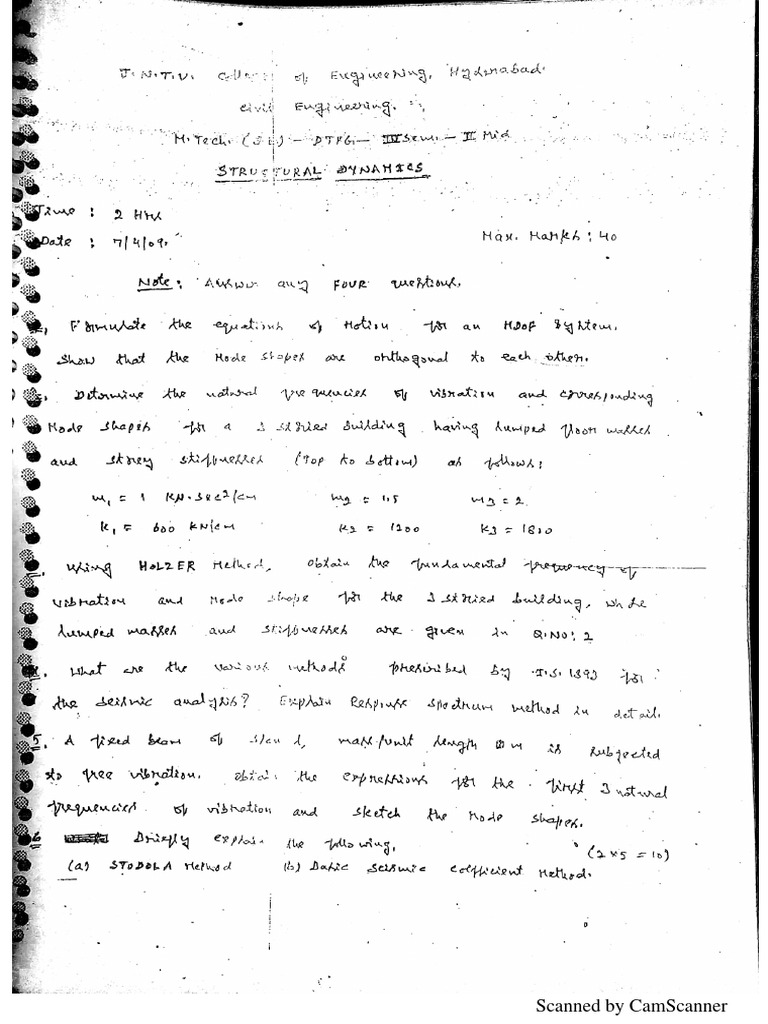 J.N.T.U. College of Engineering, Hyderabad.
Civil Engineering.
M.Tech. (SE) - DTPG - IV Sem. - II Mid
STRUCTURAL DYNAMICS
Time : 2 Hrs
Date : 7/4/09. Max. Marks : 40
Note: Answer any FOUR questions.
Formulate the equations of Motion for an MDOF System.
Show that the Mode shapes are orthogonal to each other.
Determine the natural frequencies of vibration and corresponding
Mode shapes for a 3 storied building having lumped floor masses
and storey stiffnesses (top to bottom) as follows:
m1 = 1 KN.sec²/cm m2 = 1.5 m3 = 2
K1 = 600 KN/cm K2 = 1200 K3 = 1800
Using HOLZER Method, obtain the fundamental frequency of
vibration and Mode shape for the 3 storied building, whose
lumped masses and stiffnesses are given in Q.NO: 2
4. What are the various methods prescribed by I.S. 1893 for
the seismic analysis? Explain Response spectrum method in detail.
5. A fixed beam of span l, mass/unit length m is subjected
to free vibration. obtain the expressions for the first 3 natural
frequencies of vibration and sketch the Mode shapes.
6 Briefly explain the following. (2 x 5 = 10)
(a) STODOLA Method (b) Basic seismic coefficient Method.
Scanned by CamScanner